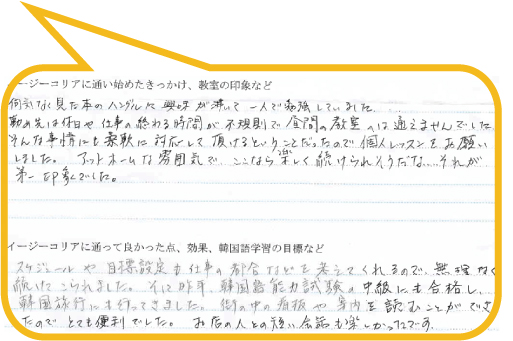 イージーコリアに通い始めたきっかけ、教室の印象など
何気なく見た本のハングルに興味が湧いて一人で勉強していました。
勤め先は休日や仕事の終わる時間が不規則で昼間の教室へは通えませんでした。
そんな事情にも柔軟に対応して頂けるということだったので個人レッスンをお願い
しました。アットホームな雰囲気で、ここなら楽しく続けられそうだな…それが
第一印象でした。
イージーコリアに通って良かった点、効果、韓国語学習の目標など
スケジュールや目標設定も仕事の都合などを考えてくれるので、無理なく
続いてこられました。そして昨年、韓国語能力試験の中級にも合格し、
韓国旅行にも行ってきました。街の中の看板や案内を読むことができ
たのでとても便利でした。お店の人との短い会話も楽しかったです。